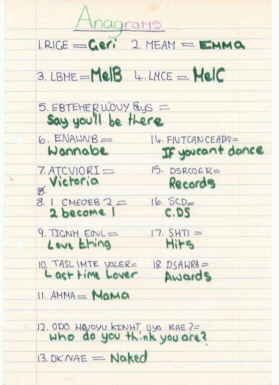 Anagrams
1.RIGE = Geri 2. MEAM = EMMA
3. LBME = MelB 4. LMCE = MelC
5. EBTEHERLLOUY Bys =
Say you'll be there
6. ENAWNB =
Wannabe
14. 
If you cant dance
7. ATCVIORI =
Victoria
15. 
Records
8. 1 CMEOEB 2 =
2 become 1
16. SCD=
C.DS
9. TIGNH EOVL =
Love thing
17. SHTI =
Hits
10. TASL IMTE VOLER=
Last time Lover
18 DSAWRA=
Awards
11. AMMA = Mama
12. ODO
who do you think you are?
13. DKNAE = Naked